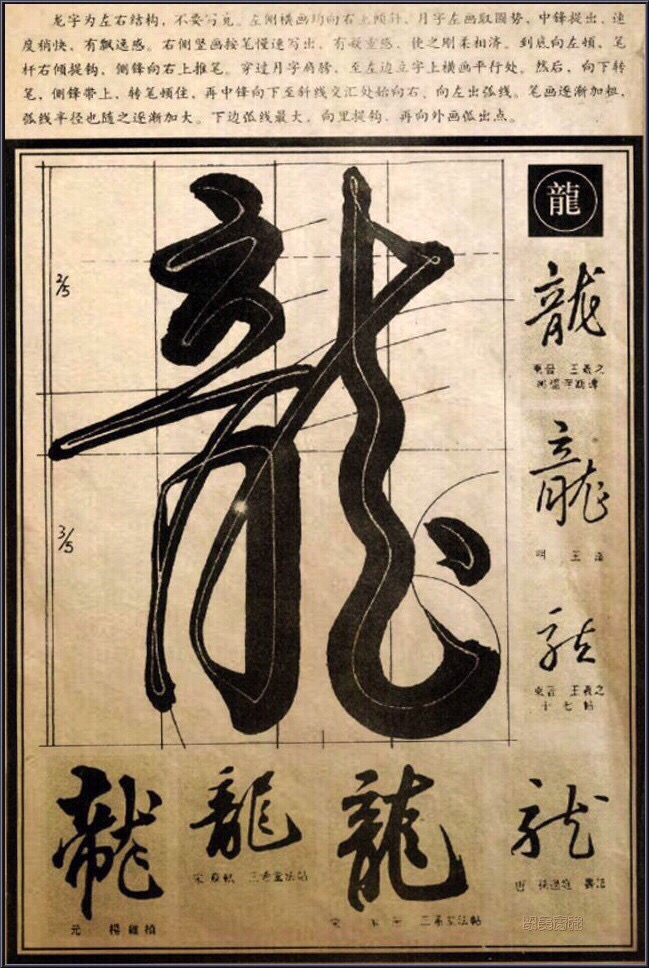 龙字为左右结构，不要写宽。左侧横画均向右上倾斜，月字左画取圆势，中锋提出，速
度稍快、有飘逸感。右侧竖画按笔慢速写出，有凝重感，使之刚柔相济。到底向左顿，笔
杆右倾提钩，侧锋向右上推笔。穿过月字肩膀，至左边立字上横画平行处。然后，向下转
笔，侧锋带上，转笔顿住，再中锋向下至斜线交汇处始向右、向左出弧线。笔画逐渐加粗，
弧线半径也随之逐渐加大。下边弧线最大，向里提钩，再向外画弧出点。
龍
龍
2/5
龍
東晋 王羲之
龍
明 王
3/5
龍
東晋 王羲之
十七帖
龍
元 楊維楨
龍
宋 三希堂法帖
龍
宋 三希堂法帖
龍
唐 孫過庭 書譜